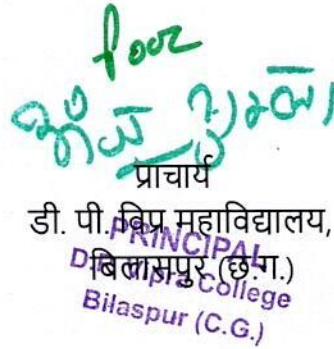 for
प्राचार्य
डी. पी. विप्र महाविद्यालय,
बिलासपुर (छ.ग.)
PRINCIPAL
D.P. Vipra College
Bilaspur (C.G.)